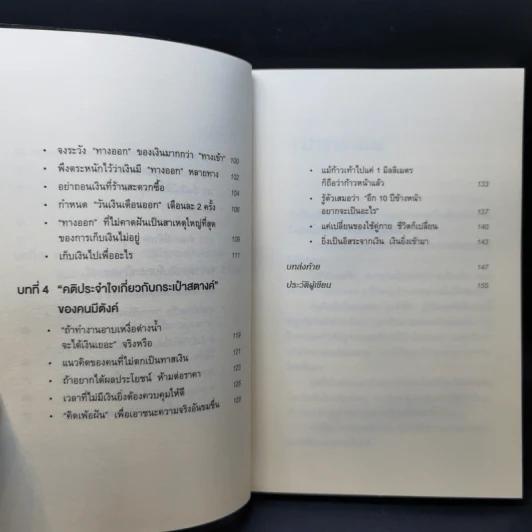 • จงระวัง "ทางออก" ของเงินมากกว่า "ทางเข้า" 100
• พึงตระหนักไว้ว่าเงินมี "ทางออก" หลายทาง 102
• อย่าถอนเงินที่ร้านสะดวกซื้อ 104
• กำหนด "วันเงินเดือนออก" เดือนละ 2 ครั้ง 106
• "ทางออก" ที่ไม่คาดฝันเป็นสาเหตุใหญ่ที่สุด
ของการเก็บเงินไม่อยู่ 108
• เก็บเงินไปเพื่ออะไร 111
บทที่ 4 "คติประจำใจเกี่ยวกับกระเป๋าสตางค์"
ของคนมีตังค์
• "ถ้าทำงานอาบเหงื่อต่างน้ำ
จะได้เงินเยอะ" จริงหรือ 119
• แนวคิดของคนที่ไม่ตกเป็นทาสเงิน 121
• ถ้าอยากได้ผลประโยชน์ ห้ามต่อราคา 123
• เวลาที่ไม่มีเงินยิ่งต้องควบคุมให้ดี 125
• "คิดเพ้อฝัน" เพื่อเอาชนะความจริงอันขมขื่น
• แม้ก้าวเท้าไปแค่ 1 มิลลิเมตร
ก็ถือว่าก้าวหน้าแล้ว 133
• รู้ตัวเสมอว่า "อีก 10 ปีข้างหน้า
อยากจะเป็นอะไร" 137
• แค่เปลี่ยนของใช้คู่กาย ชีวิตก็เปลี่ยน 140
• ยิ่งเป็นอิสระจากเงิน เงินยิ่งเข้ามา 143
บทส่งท้าย 147
ประวัติผู้เขียน 155